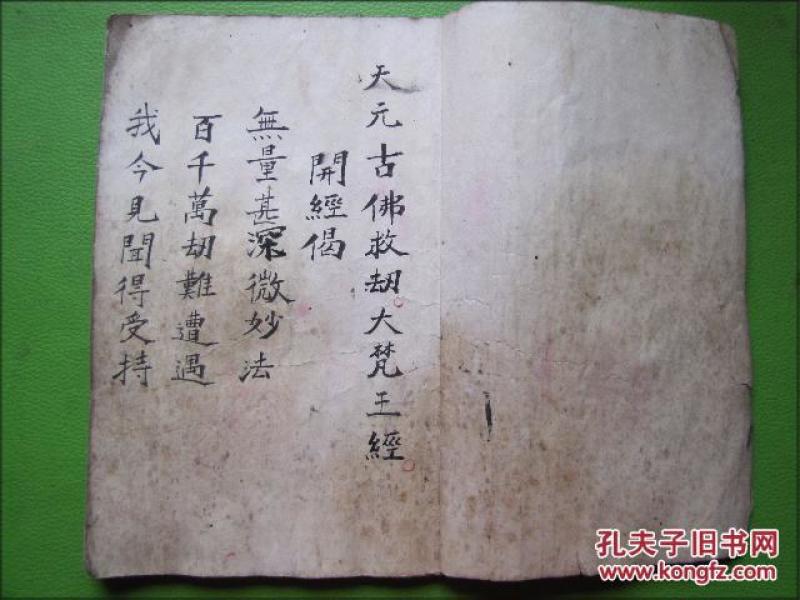 天元古佛救劫大梵王經
開經偈
無量甚深微妙法
百千萬劫難遭遇
我今見聞得受持
孔夫子旧书网
www.kongfz.com